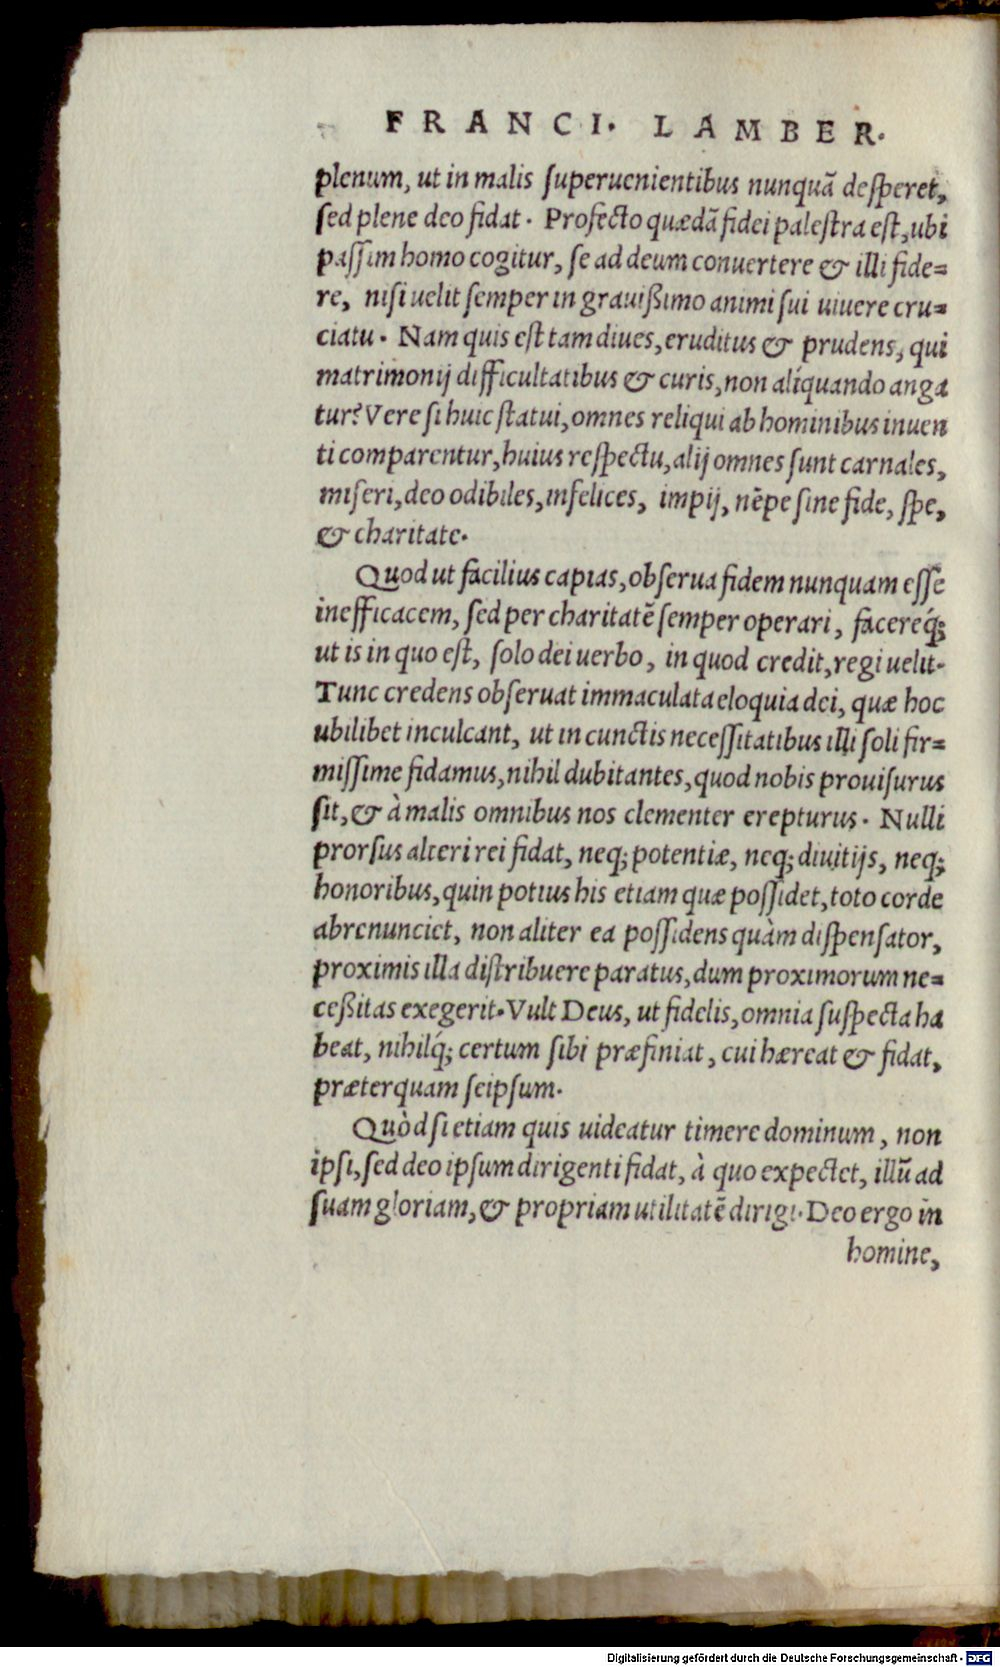 FRANCI. LAMBER.
plenum, ut in malis superuenientibus nunquã desperet,
sed plene deo fidat. Profecto quædã fidei palestra est, ubi
passim homo cogitur, se ad deum conuertere & illi fide=
re, nisi uelit semper in grauißimo animi sui uiuere cru=
ciatu. Nam quis est tam diues, eruditus & prudens, qui
matrimonij difficultatibus & curis, non alíquando anga
tur? Vere si huic statui, omnes reliqui ab hominibus inuen
ti comparentur, huius respectu, alij omnes sunt carnales,
miseri, deo odibiles, infelices, impij, nẽpe sine fide, spe,
& charitate.
Quod ut facilius capias, obserua fidem nunquam esse
inefficacem, sed per charitatẽ semper operari, facereq́;
ut is in quo est, solo dei uerbo, in quod credit, regi uelit.
Tunc credens obseruat immaculata eloquia dei, quæ hoc
ubilibet inculcant, ut in cunctis necessitatibus illi soli fir=
missime fidamus, nihil dubitantes, quod nobis prouisurus
sit, & à malis omnibus nos clementer erepturus. Nulli
prorsus alteri rei fidat, neq; potentiæ, neq; diuitijs, neq;
honoribus, quin potius his etiam quæ possidet, toto corde
abrenunciet, non aliter ea possidens quàm dispensator,
proximis illa distribuere paratus, dum proximorum ne=
ceßitas exegerit. Vult Deus, ut fidelis, omnia suspecta ha
beat, nihilq́; certum sibi præfiniat, cui hæreat & fidat,
præterquam seipsum.
Quòd si etiam quis uideatur timere dominum, non
ipsi, sed deo ipsum dirigenti fidat, à quo expectet, illũ ad
suam gloriam, & propriam utilitatẽ dirigi. Deo ergo in
homine,
Digitalisierung gefördert durch die Deutsche Forschungsgemeinschaft - DFG